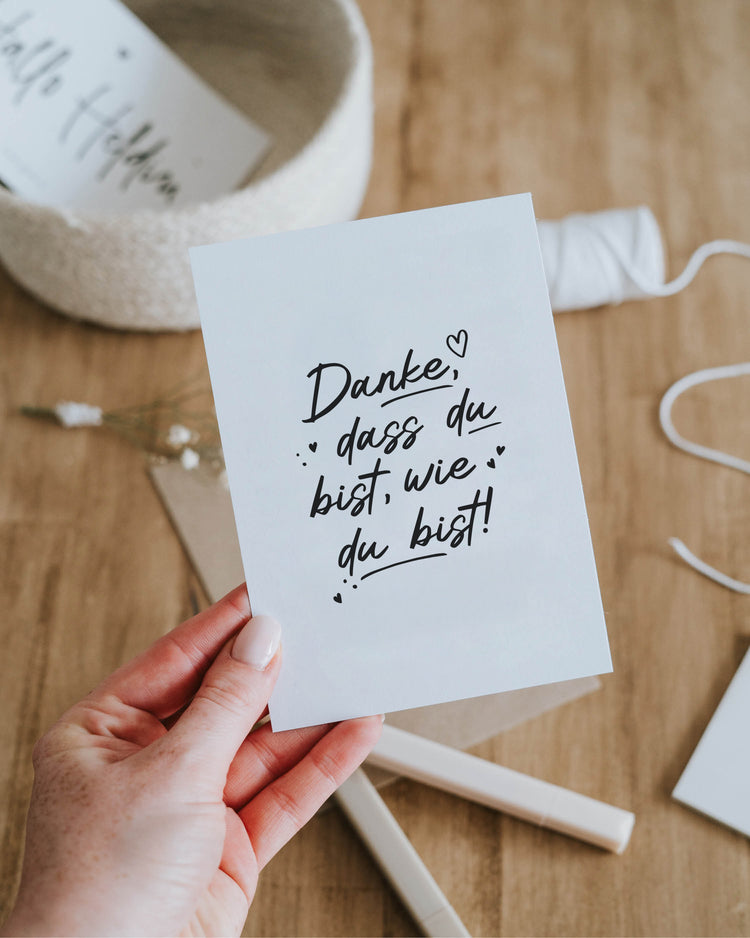 Hallo
Heldin
Danke,
dass du
bist, wie
du bist!